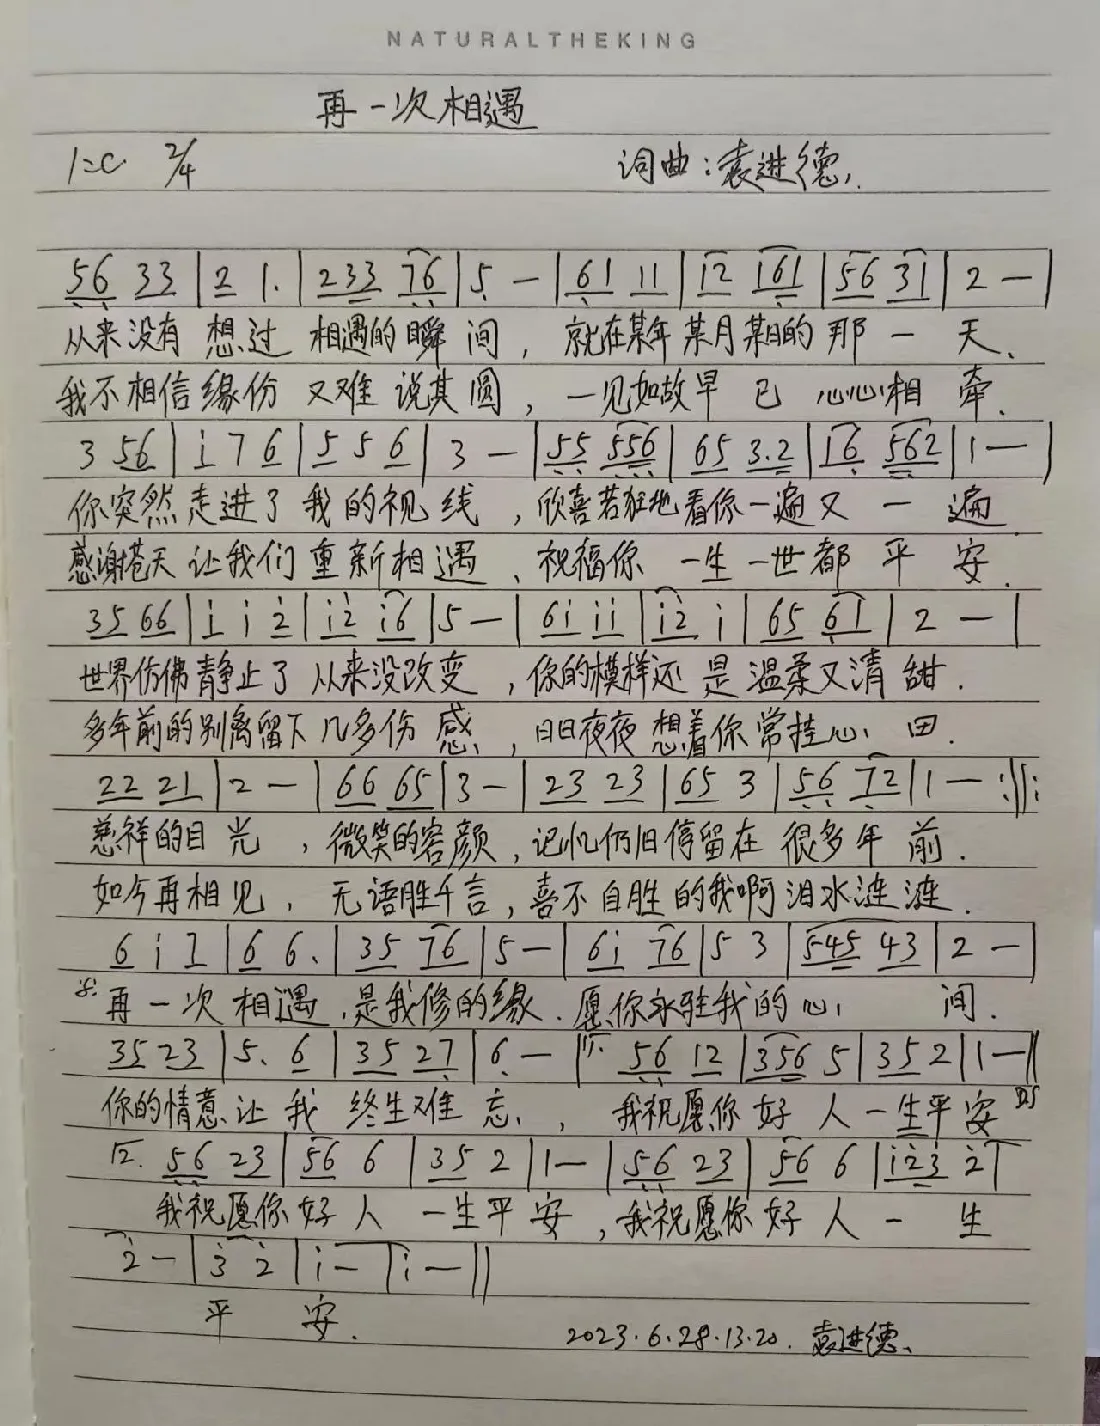 NATURALTHEKING
再一次相遇
1=C 2/4 词曲：袁进德.
56 33 | 2 1. | 233 76 | 5 — | 61 11 | 12 161 | 56 31 | 2 — |
从来没有 想过 相遇的瞬间，就在某年某月某日的那一天.
我不相信缘份 又难说其圆，一见如故早已 心心相牵.
3 56 | i 7 6 | 5 5 6 | 3 — | 55 556 | 65 3.2 | 16 562 | 1 — |
你突然走进了我的视线，欣喜若狂地看你一遍又一遍.
感谢苍天让我们重新相遇、祝福你 一生一世都平安.
35 66 | i i 2 | i2 i6 | 5 — | 6i ii | i2 i | 65 61 | 2 — |
世界仿佛静止了 从来没改变，你的模样还是温柔又清甜.
多年前的别离留下几多伤感，日日夜夜想着你常挂心田.
22 21 | 2 — | 66 65 | 3 — | 23 23 | 65 3 | 56 72 | 1 — :||:
慈祥的目光，微笑的容颜，记忆仍旧停留在很多年前.
如今再相见，无语胜千言，喜不自胜的我啊泪水涟涟.
6 i 7 | 6 6. | 35 76 | 5 — | 6i 76 | 5 3 | 545 43 | 2 — |
再一次相遇，是我修的缘.愿你永驻我的心间.
35 23 | 5. 6 | 35 27 | 6 — | 1. 56 12 | 356 5 | 35 2 | 1 — ||
你的情意让我 终生难忘，我祝愿你好人一生平安 D.S
2. 56 23 | 56 6 | 35 2 | 1 — | 56 23 | 56 6 | i23 2 |
我祝愿你好人一生平安，我祝愿你好人一生
2 — | 3 2 | i — | i — ||
平安.
2023.6.28.13.20. 袁进德.